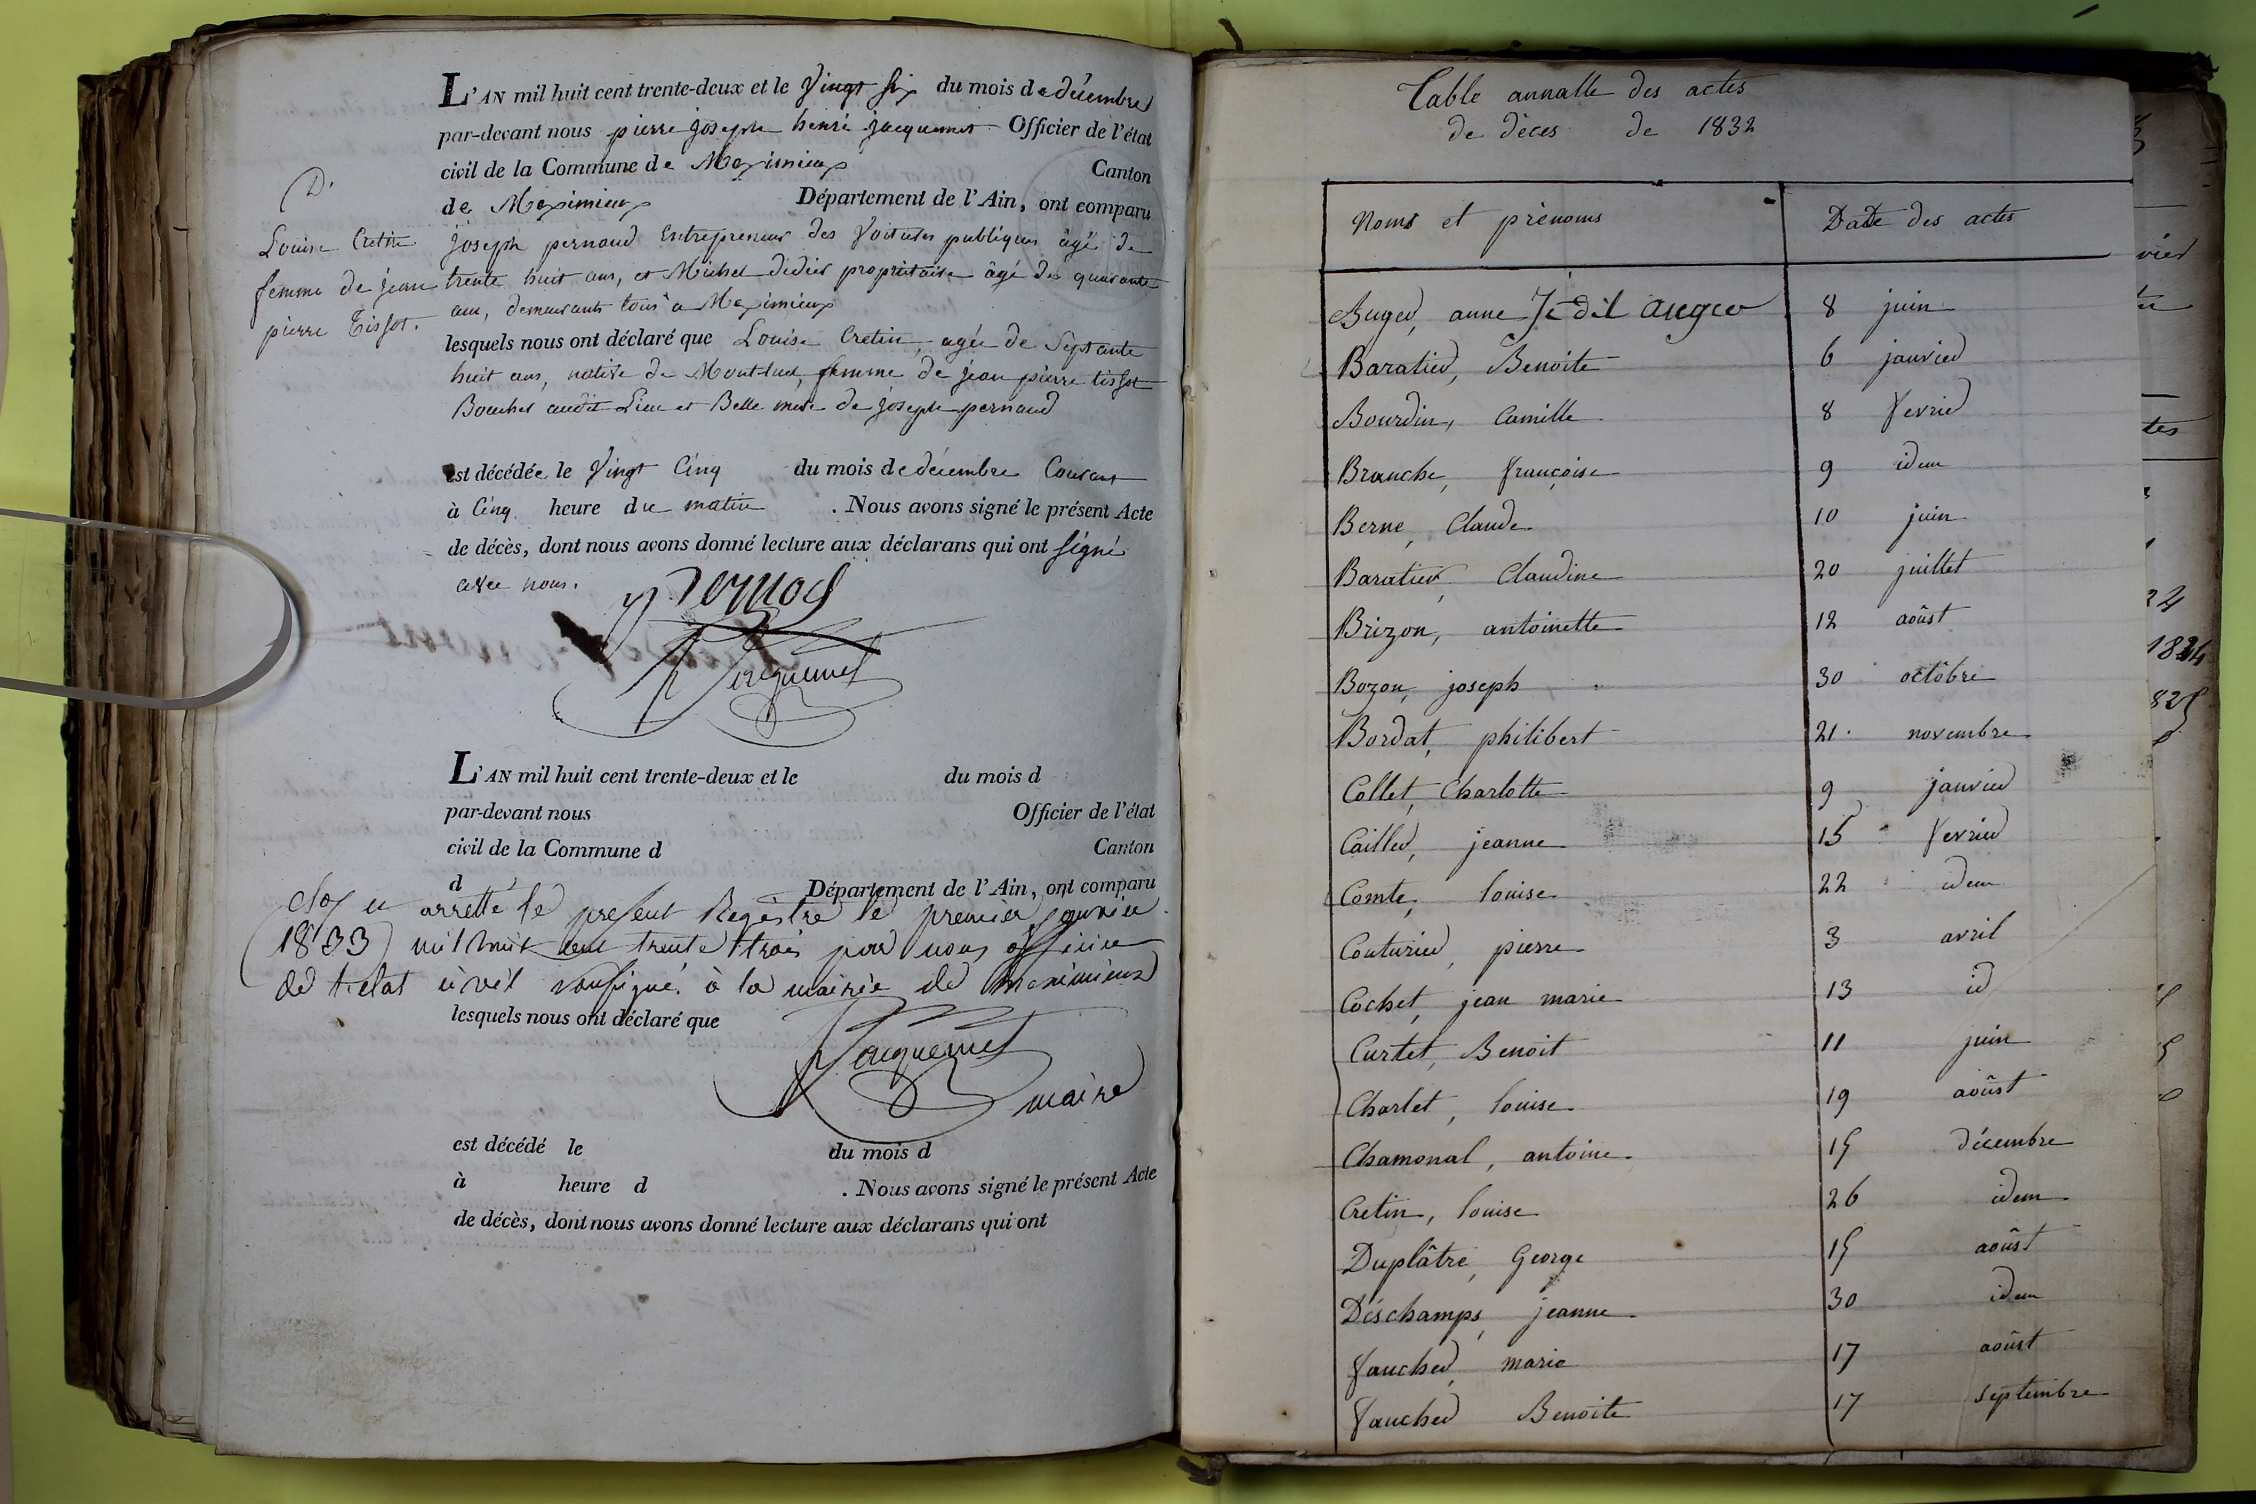 L'AN mil huit cent trente-deux et le Vingt Six du mois de décembre
par-devant nous pierre joseph henri jacquemet Officier de l'état
civil de la Commune de Meximieux Canton
de Meximieux Département de l'Ain, ont comparu
D.
Louise Cretin
femme de jean
pierre Tissot.
joseph pernoud Entrepreneur des Voitures publiques âgé de
trente huit ans, et Michel didier propriétaire âgé de quarante
ans, demeurants tous à Meximieux
lesquels nous ont déclaré que Louise Cretin, agée de Septante
huit ans, native de Montluel, femme de jean pierre tissot
Boucher audit Lieu et Belle mere de joseph pernoud
est décédée le Vingt Cinq du mois de décembre Courant
à Cinq heure du matin . Nous avons signé le présent Acte
de décès, dont nous avons donné lecture aux déclarans qui ont signé
avec nous.
Jacquemet
L'AN mil huit cent trente-deux et le du mois d
par-devant nous Officier de l'état
civil de la Commune d Canton
d Département de l'Ain, ont comparu
clos et arretté le present Registre le premier janvier
(1833) mil huit cent trente trois par nous officier
de l'etat civil soussigné à la mairie de Meximieux
lesquels nous ont déclaré que
Jacquemet
maire
est décédé le du mois d
à heure d . Nous avons signé le présent Acte
de décès, dont nous avons donné lecture aux déclarans qui ont
Table annalle des actes
de déces de 1832
Noms et prénoms Date des actes
Buger, anne 8 juin
Baratier, Benoite 6 janvier
Bourdin, Camille 8 fevrier
Branche, françoise 9 idem
Berne, Claude 10 juin
Baratier, Claudine 20 juillet
Brizon, antoinette 12 août
Bozon, joseph 30 octobre
Bordat, philibert 21 novembre
Collet, Charlotte 9 janvier
Cailler, jeanne 15 fevrier
Comte, louise 22 idem
Couturier, pierre 3 avril
Cochet, jean marie 13 id
Curtet, Benoit 11 juin
Charlet, louise 19 aoûst
Chamonal, antoine 15 décembre
Cretin, louise 26 idem
Duplâtre, George 15 aoûst
Déschamps, jeanne 30 idem
faucher, marie 17 aoûst
faucher Benoite 17 septembre